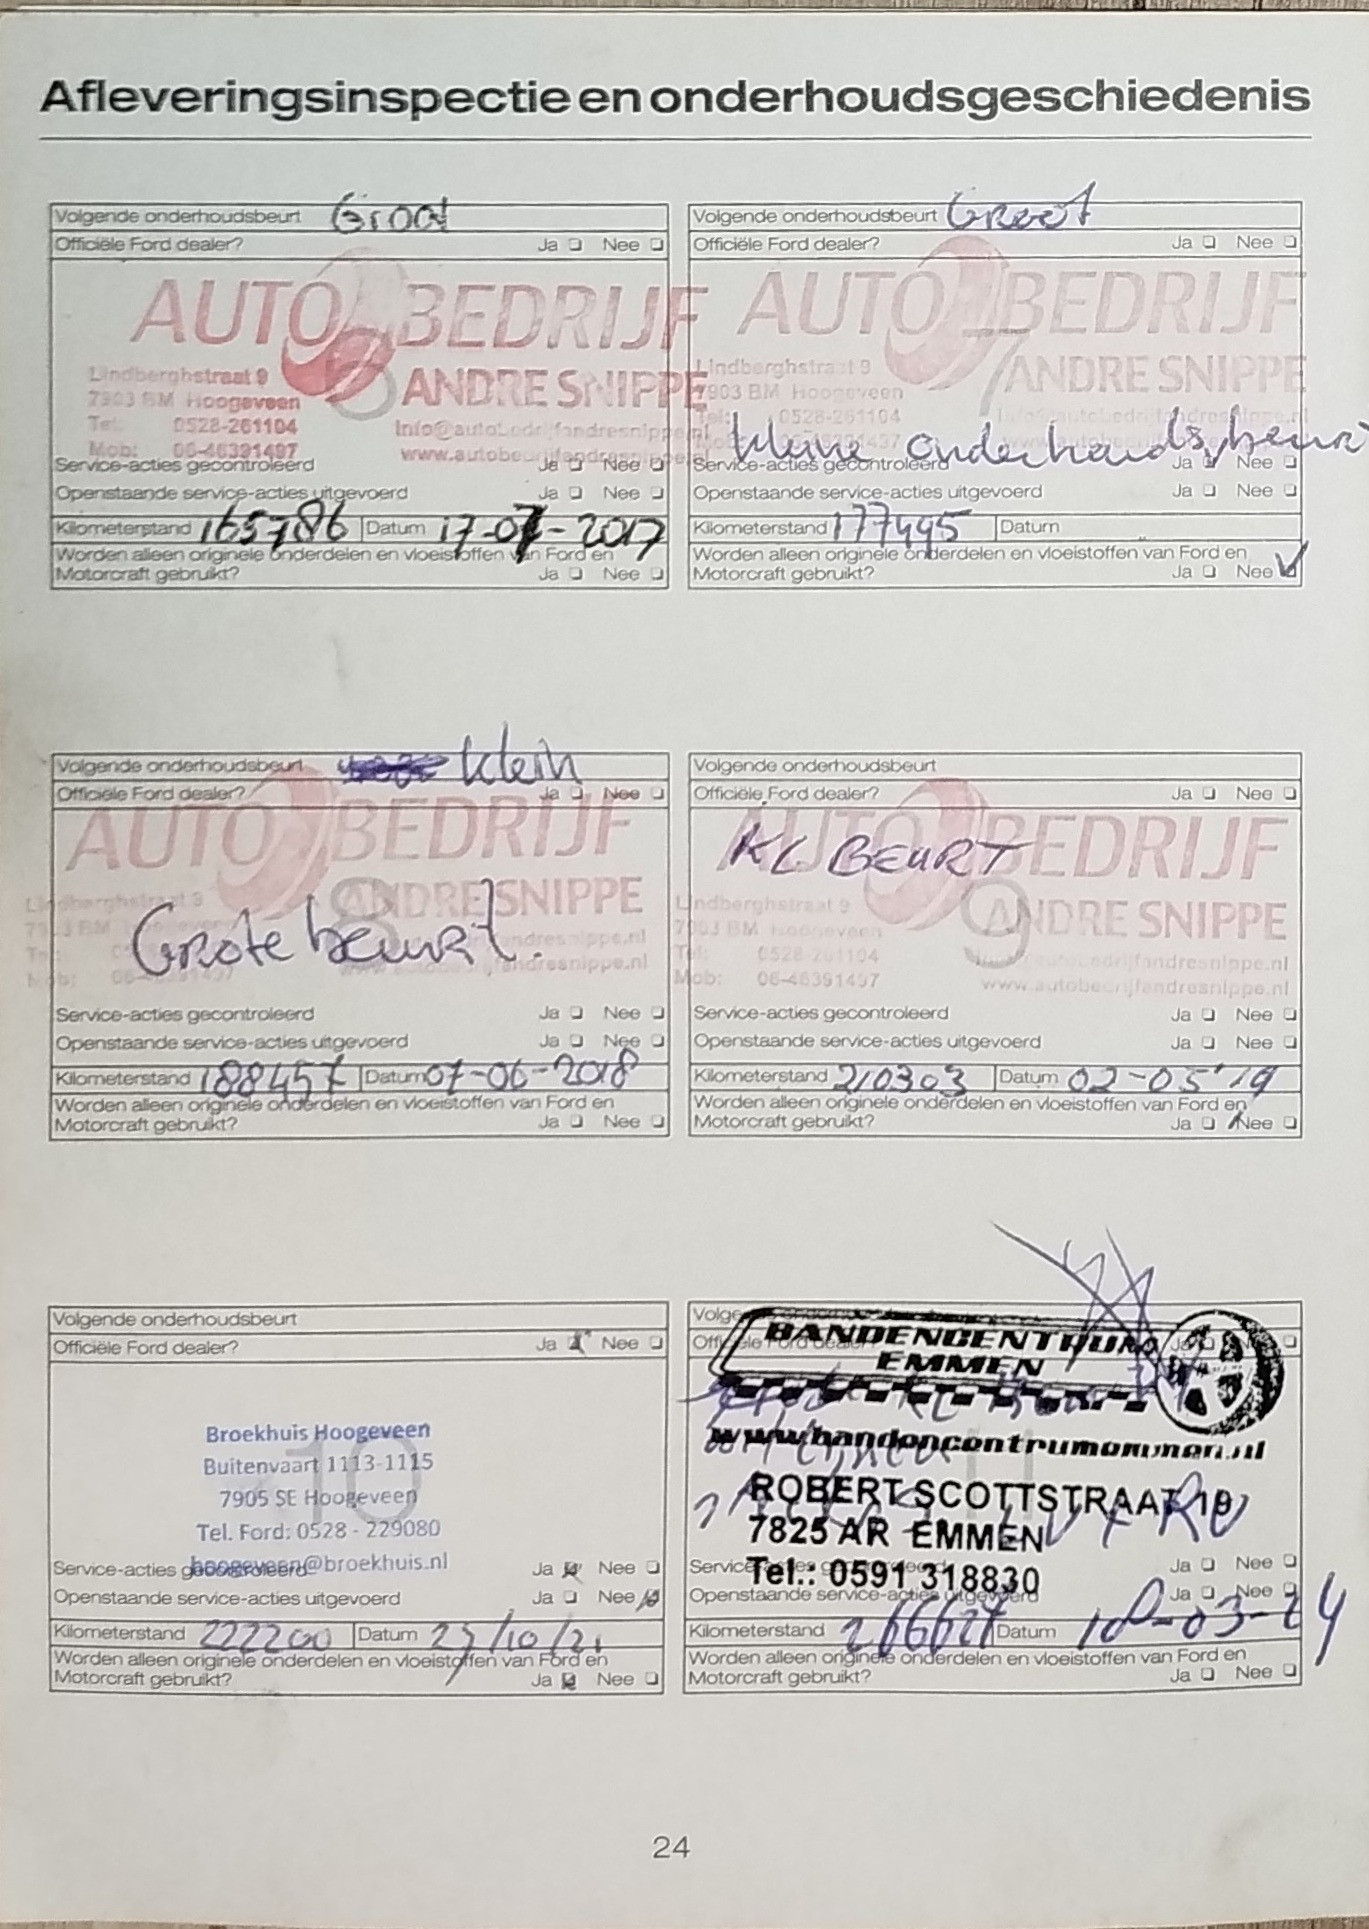 Afleveringsinspectie en onderhoudsgeschiedenis
Volgende onderhoudsbeurt Groot
Officiële Ford dealer? Ja Nee
AUTO BEDRIJF
ANDRE SNIPPE
Lindberghstraat 9
7903 BM Hoogeveen
Tel: 0528-261104
Mob: 06-46391497
6
info@autobedrijfandresnippe.nl
www.autobedrijfandresnippe.nl
Service-acties gecontroleerd Ja Nee
Openstaande service-acties uitgevoerd Ja Nee
Kilometerstand 165786 Datum 17-07-2017
Worden alleen originele onderdelen en vloeistoffen van Ford en
Motorcraft gebruikt? Ja Nee
Volgende onderhoudsbeurt Groot
Officiële Ford dealer? Ja Nee
AUTO BEDRIJF
ANDRE SNIPPE
Lindberghstraat 9
7903 BM Hoogeveen
Tel: 0528-261104
7
info@autobedrijfandresnippe.nl
kleine onderhoudsbeurt
Service-acties gecontroleerd Ja Nee
Openstaande service-acties uitgevoerd Ja Nee
Kilometerstand 177495 Datum
Worden alleen originele onderdelen en vloeistoffen van Ford en
Motorcraft gebruikt? Ja Nee
Volgende onderhoudsbeurt klein
Officiële Ford dealer? Ja Nee
AUTO BEDRIJF
8
ANDRE SNIPPE
Lindberghstraat 9
Grote beurt.
Service-acties gecontroleerd Ja Nee
Openstaande service-acties uitgevoerd Ja Nee
Kilometerstand 188457 Datum 07-06-2018
Worden alleen originele onderdelen en vloeistoffen van Ford en
Motorcraft gebruikt? Ja Nee
Volgende onderhoudsbeurt
Officiële Ford dealer? Ja Nee
AUTO BEDRIJF
KL BEURT
9
ANDRE SNIPPE
Lindberghstraat 9
7903 BM Hoogeveen
Tel: 0528-261104
Mob: 06-46391497
www.autobedrijfandresnippe.nl
Service-acties gecontroleerd Ja Nee
Openstaande service-acties uitgevoerd Ja Nee
Kilometerstand 210303 Datum 02-05'19
Worden alleen originele onderdelen en vloeistoffen van Ford en
Motorcraft gebruikt? Ja Nee
Volgende onderhoudsbeurt
Officiële Ford dealer? Ja Nee
10
Broekhuis Hoogeveen
Buitenvaart 1113-1115
7905 SE Hoogeveen
Tel. Ford: 0528 - 229080
hoogeveen@broekhuis.nl
Service-acties gecontroleerd Ja Nee
Openstaande service-acties uitgevoerd Ja Nee
Kilometerstand 222200 Datum 27/10/21
Worden alleen originele onderdelen en vloeistoffen van Ford en
Motorcraft gebruikt? Ja Nee
BANDENCENTRUM
EMMEN
www.bandencentrumemmen.nl
11
ROBERT SCOTTSTRAAT 10
7825 AR EMMEN
Tel.: 0591 318830
Ja Nee
Openstaande service-acties uitgevoerd Ja Nee
Kilometerstand Datum
Worden alleen originele onderdelen en vloeistoffen van Ford en
Motorcraft gebruikt? Ja Nee
24